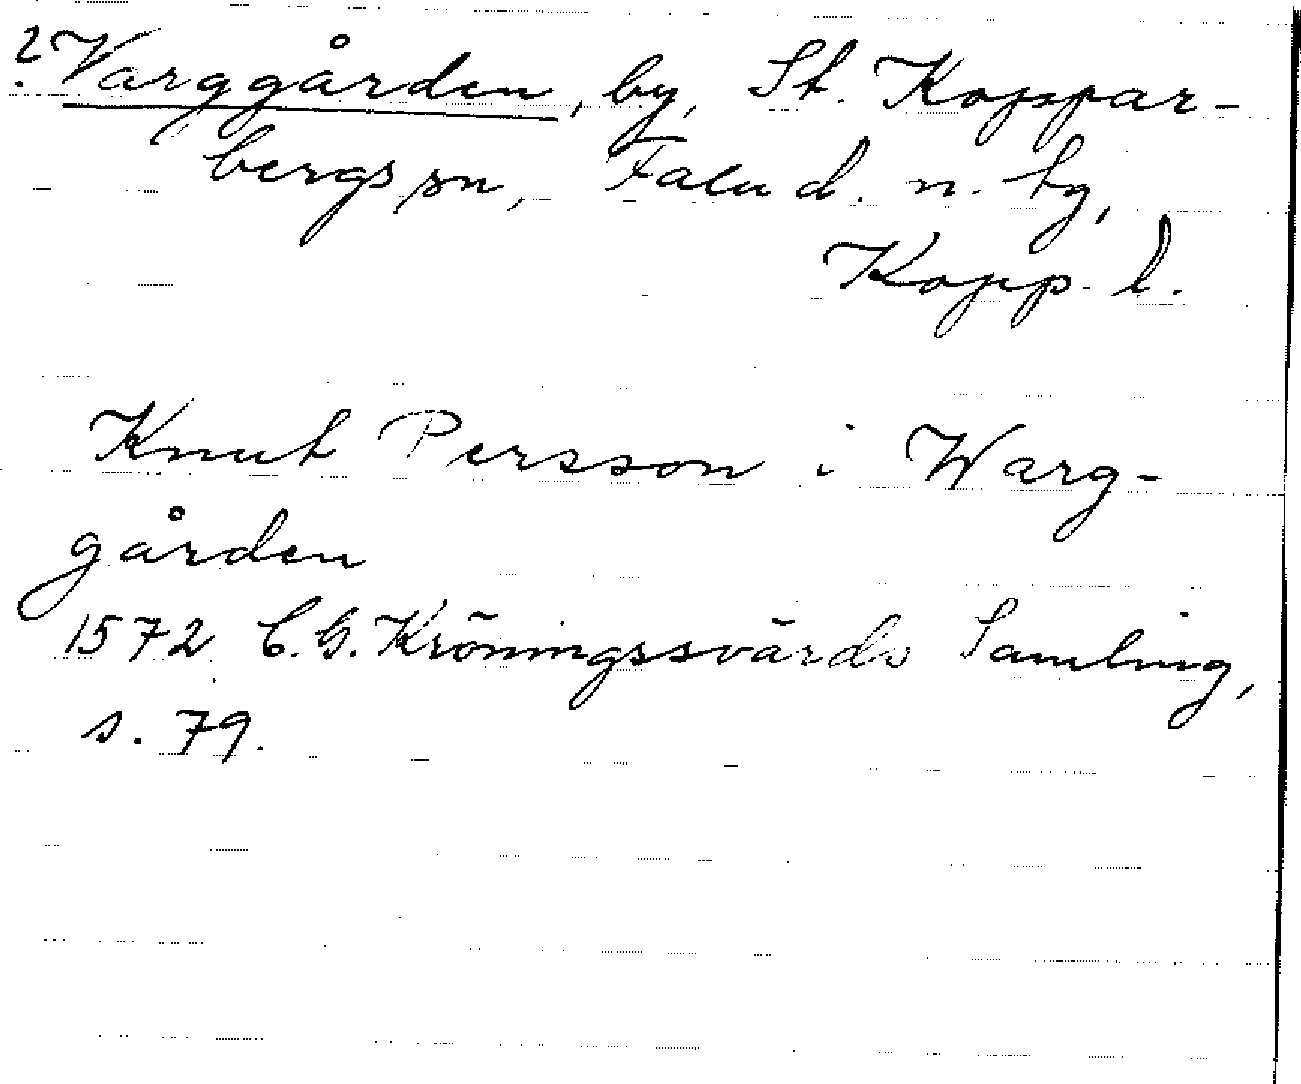 ? Varggården, by, St. Koppar-
bergs sn, Falu d. n. tg,
Kopp. l.
Knut Persson i Warg-
gården
1572 C. G. Kröningssvärds Samling,
s. 79.